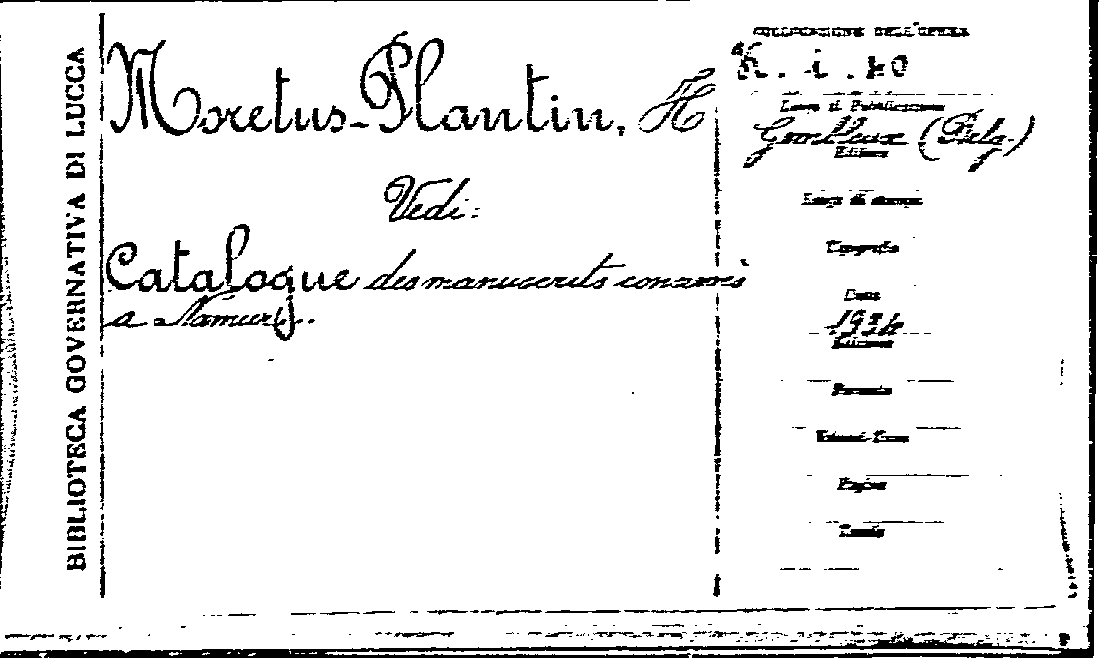 BIBLIOTECA GOVERNATIVA DI LUCCA
Moretus-Plantin, H
Vedi:
Catalogue des manuscrits conservés
a Namur.
COLLOCAZIONE DELL'OPERA
Luogo di Pubblicazione
Gembloux (Belg.)
Editore
Luogo di stampa
Tipografia
Data
1934
Edizione
Formato
Volumi
Pagine
Tavole